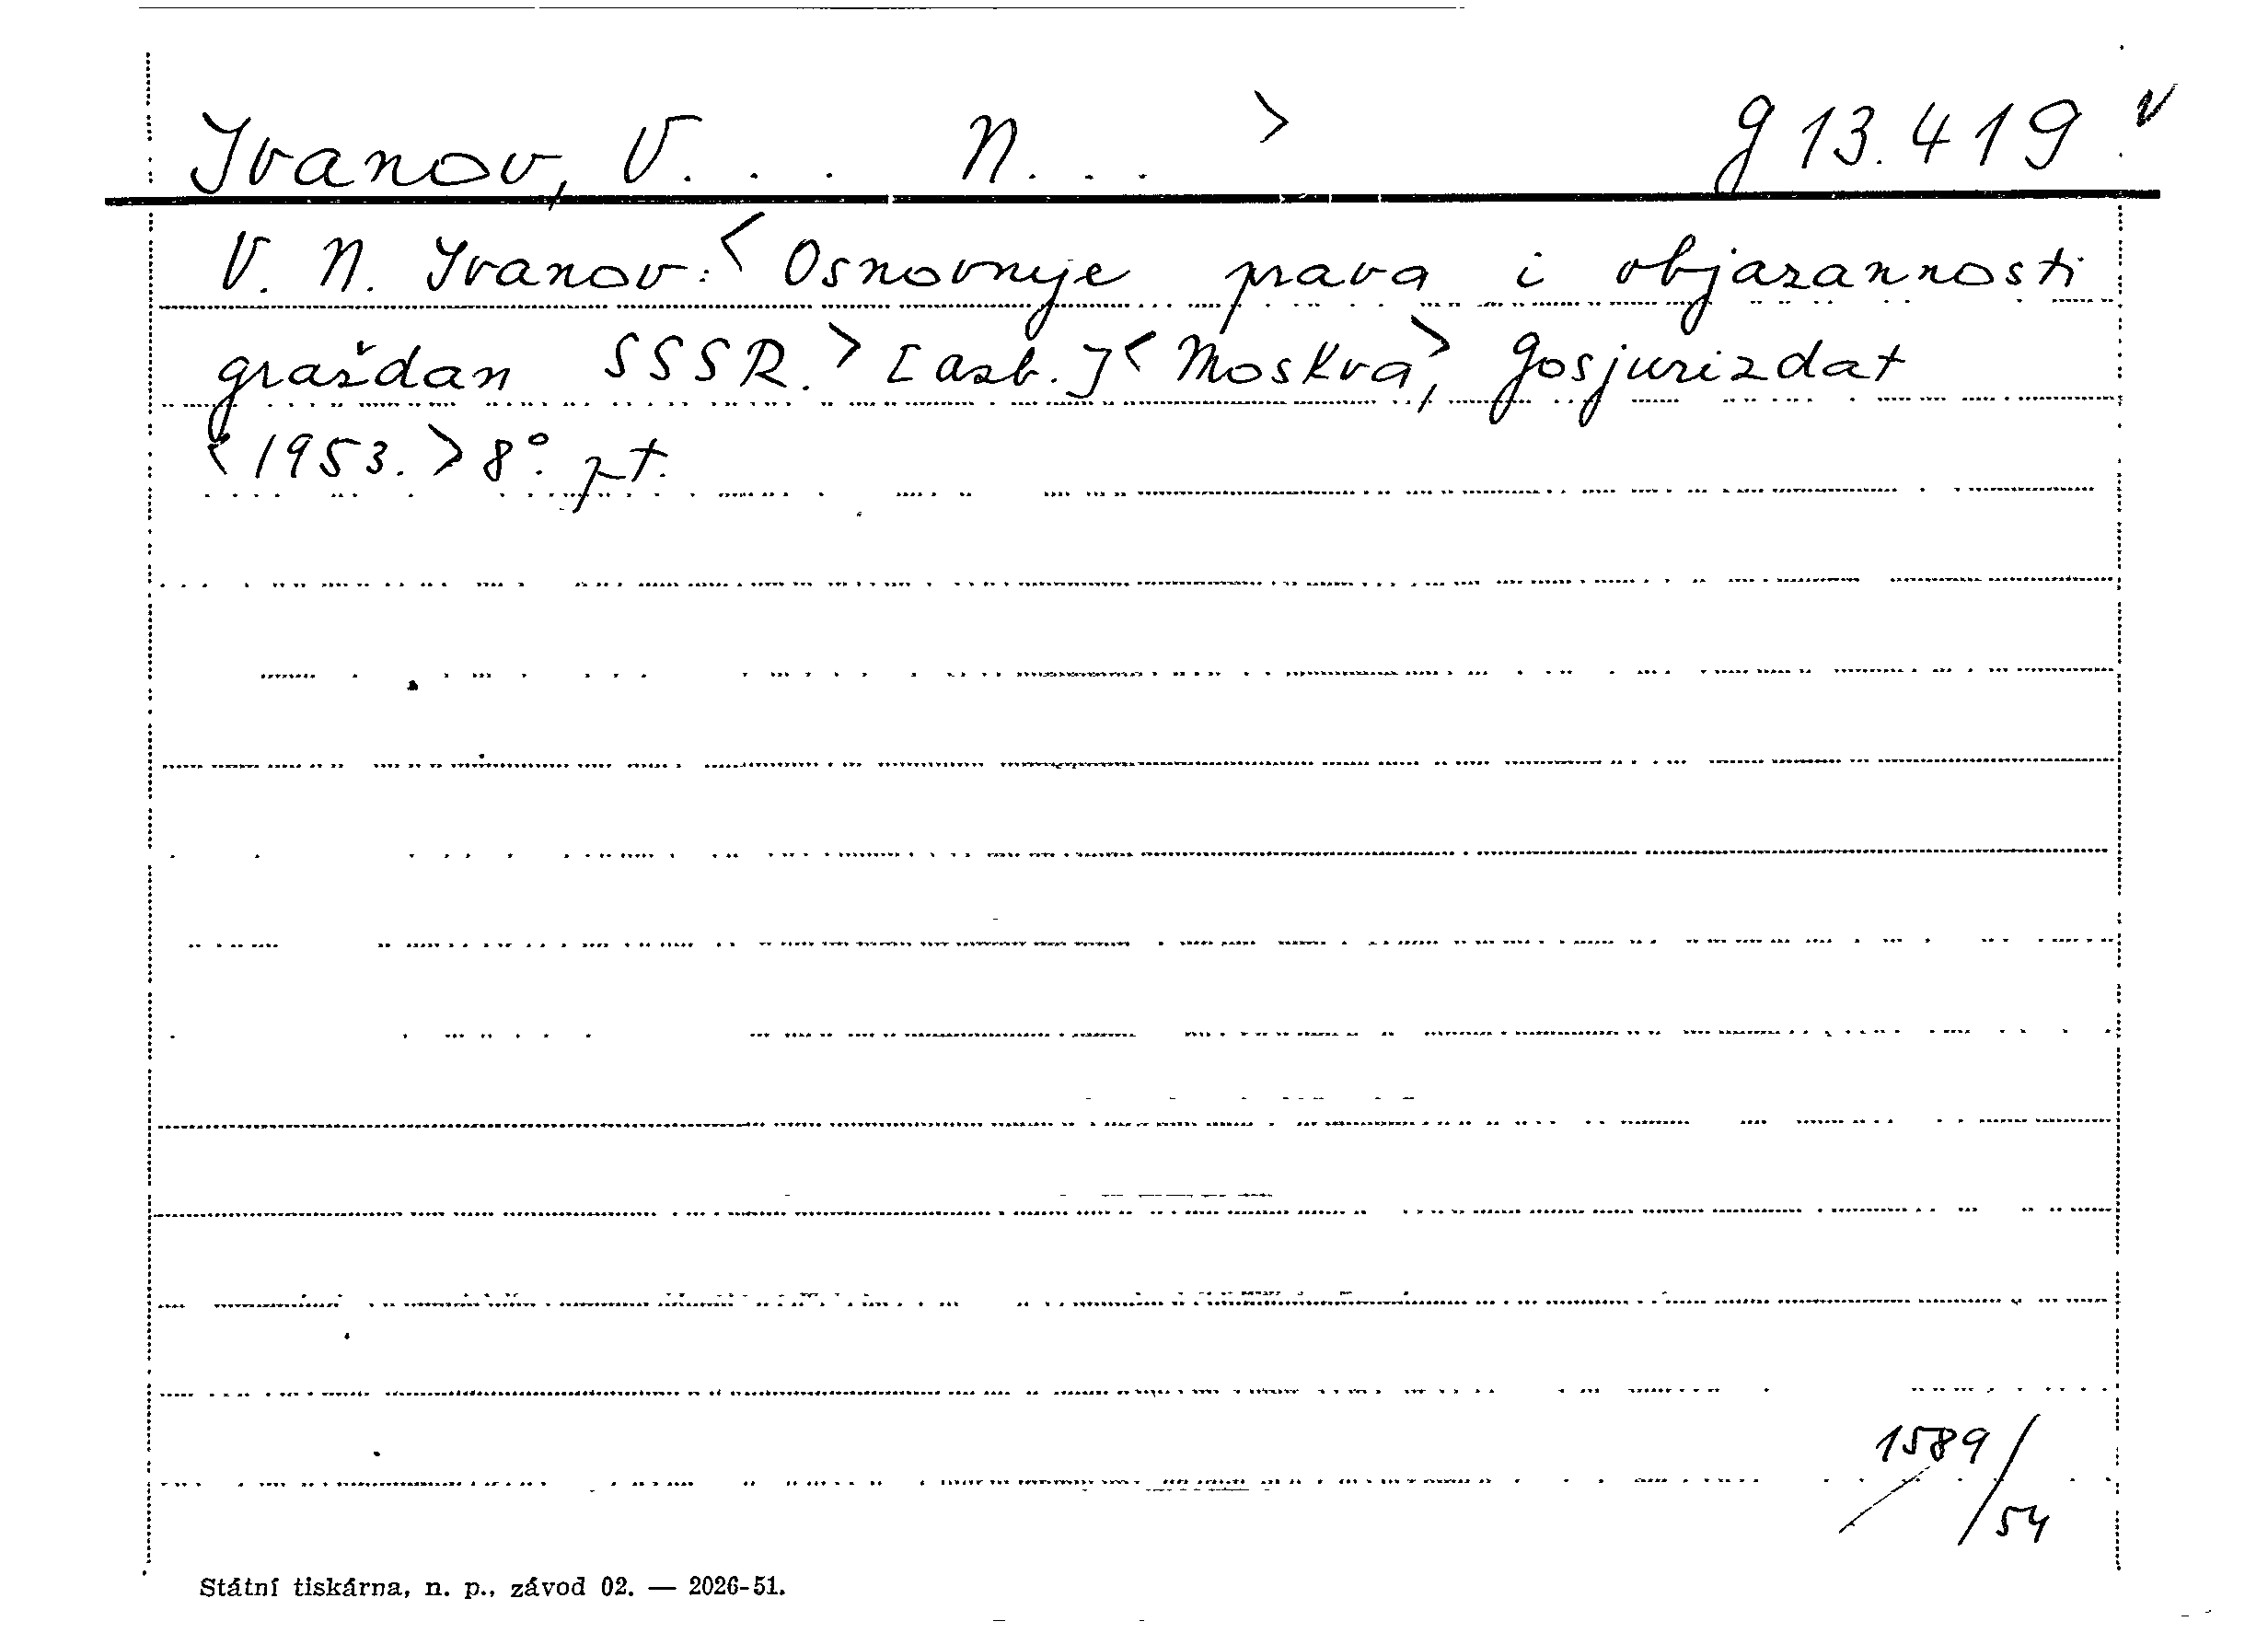 Ivanov, V. . . N. . . > g 13.419 v
V. N. Ivanov: < Osnovnyje prava i objazannosti
graždan SSSR. > [azb.] < Moskva >, Gosjurizdat
< 1953. > 8°. pt.
1589/54
Státní tiskárna, n. p., závod 02. — 2026-51.